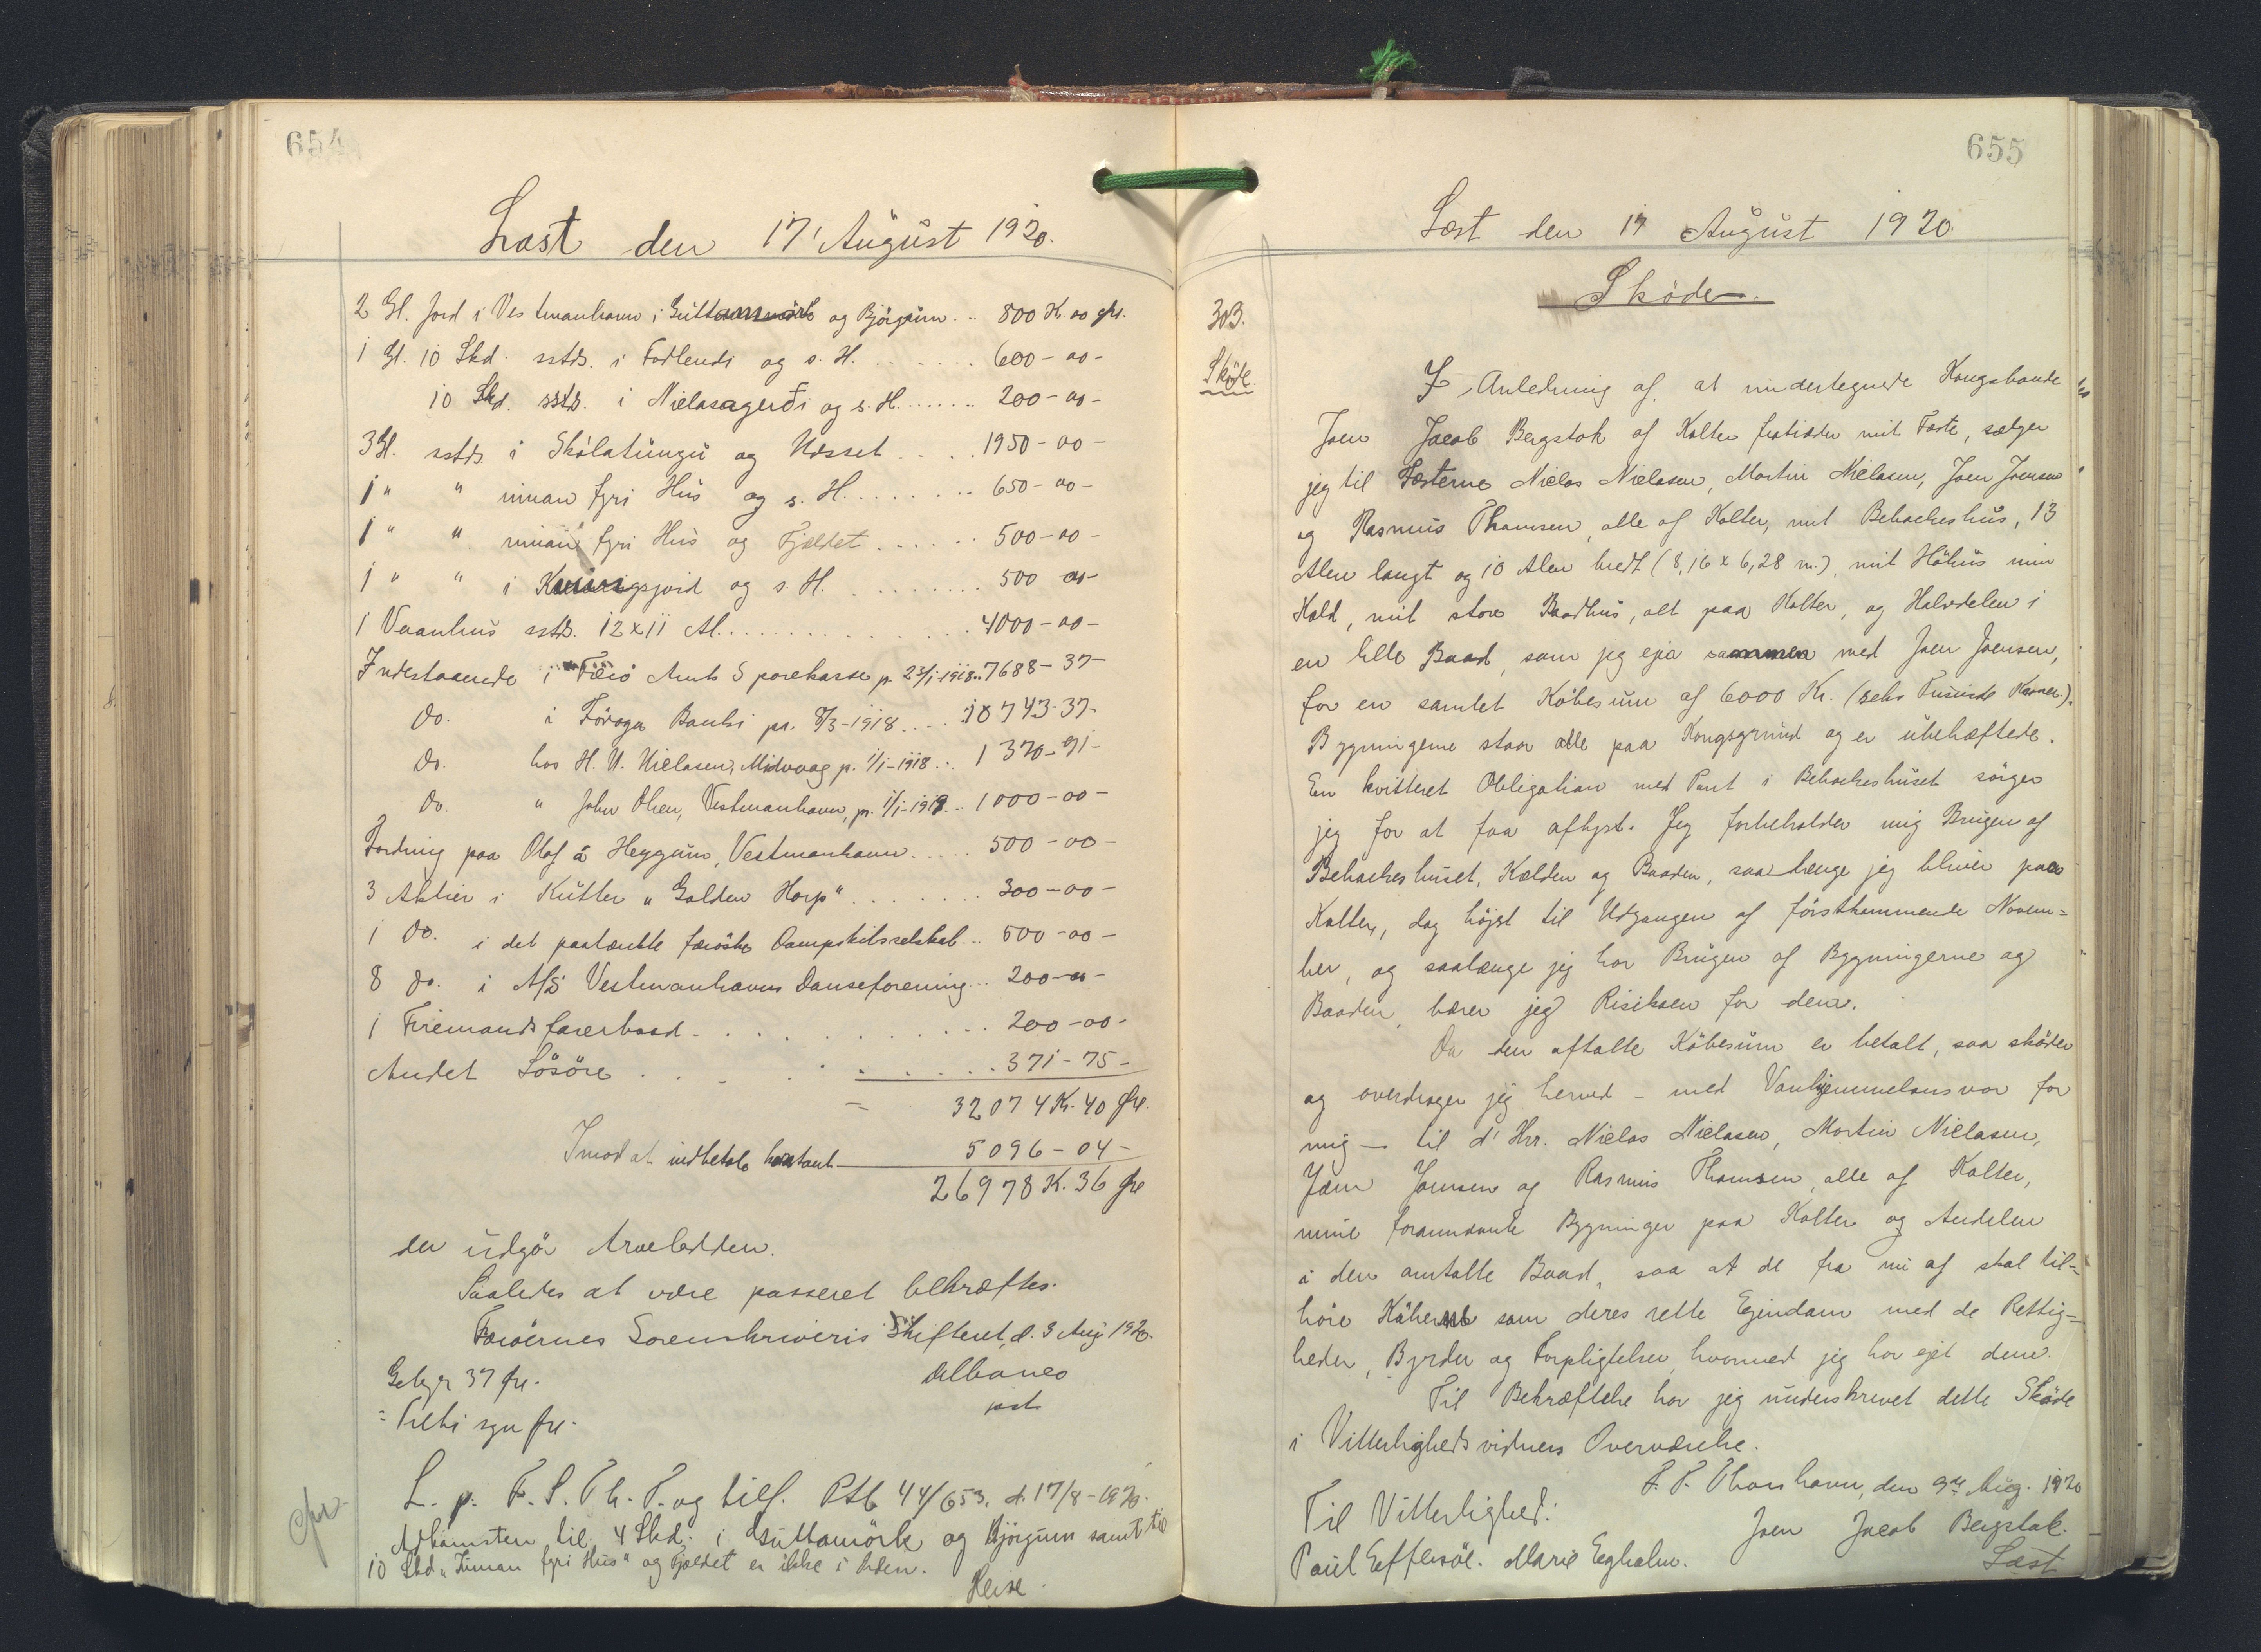 654
Læst den 17' August 1920.
2 Gl. Jord i Vestmanhavn i Guttamörk og Björgum .. 800 Kr. 00 Øre.
1 Gl. 10 Skd. sstds. i Fodlendi og s. H. ...... 600-00-
10 Skd. sstds. i Nielasagerði og s. H. ...... 200-00-
3 Gl. sstds. i Skólatúngu og Husset .... 1950-00-
1 " " innan fyri Hús og s. H. ........ 650-00-
1 " " innan fyri Hús og Fjældet ...... 500-00-
1 " " i og s. H. ......... 500 00-
1 Vaanhus sstds. 12x11 Al. .............. 4000-00-
Indestaaende i Færø Amts Sparekasse p. 23/1-1918 .. 7688-37-
Do. i Föroya Banki pr. 8/3-1918 .... 10743-37-
Do. hos H. N. Nielasen, Midvaag p. 1/1-1918 ... 1370-91-
Do. " John Olsen, Vestmanhavn, pr. 1/1-1919 .. 1000-00-
Fordring paa Olaf á Heygum, Vestmanhavn ..... 500-00-
3 Aktier i Kutter "Golden Harp" ........ 300-00-
1 Do. i det paatænkte færöske Dampskibsselskab .. 500-00-
8 Do. i A/S Vestmanhavns Danseforening .. 200-00-
1 Firemandsfarerbaad ........... 200-00-
Andet Lösöre ............ 371-75-
= 32074 Kr. 40 Øre.
Imod at indbetale kontant 5096-04-
26978 K. 36 Øre
der udgör Arvelodden.
Saaledes at være passeret bekræftes.
Færöernes Sorenskriveris Skifteret, d. 3 Aug 1920.
Gebyr 37 Øre. Albanes
= Treti syv Øre. pst.
L. p. F. S. Th. T. og tilf. Ptb 44/653. d. 17/8-1920.
Adkomsten til 4 Skd. i Guttamörk og Björgum samt til
10 Skd "Innan fyri Hús" og Fjældet er ikke i Orden.
Heise.
655
Læst den 17 August 1920.
Sköde.
303.
Sköde.
I Anledning af, at undertegnede Kongsbonde
Joen Jacob Bergstak af Kolter fratræder mit Fæste, sælger
jeg til Fæsterne Nielas Nielasen, Martin Nielasen, Joen Joensen
og Rasmus Thomsen, alle af Kolter, mit Beboelseshus, 13
Alen langt og 10 Alen bredt (8,16 x 6,28 m.), mit Höhus min
Kæld, mit store Baadhus, alt paa Kolter, og Halvdelen i
en lille Baad, som jeg ejer sammen med Joen Joensen,
for en samlet Köbesum af 6000 Kr. (seks Tusinde Kroner.).
Bygningerne staar alle paa Kongsgrund og er ubehæftede.
En kvitteret Obligation med Pant i Beboelseshuset sörger
jeg for at faa aflyst. Jeg forbeholder mig Brugen af
Beboelseshuset, Kælden og Baaden, saa længe jeg bliver paa
Kolter, dog höjst til Udgangen af förstkommende Novem=
ber, og saalænge jeg har Brugen af Bygningerne og
Baaden, bærer jeg Risikoen for dem.
Da den aftalte Köbesum er betalt, saa sköder
og overdrager jeg herved – med Vanhjemmelsansvar for
mig – til d' Hrr. Nielas Nielasen, Martin Nielasen,
Joen Joensen og Rasmus Thomsen, alle af Kolter,
mine forannævnte Bygninger paa Kolter og Andelen
i den omtalte Baad, saa at de fra nu af skal til=
höre Köberne som deres rette Ejendom med de Rettig=
heder, Byrder og Forpligtelser, hvormed jeg har ejet dem.
Til Bekræftelse har jeg underskrevet dette Sköde
i Vitterlighedsvidners Overværelse.
P. T. Thorshavn, den 9de Aug. 1920
Til Vitterlighed: Joen Jacob Bergstak.
Paul Effersöe. Marie Egholm. Læst